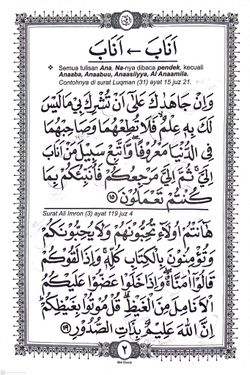 اَنَابَ ← اَنَابَ
❖ Semua tulisan Ana, Na-nya dibaca pendek, kecuali
Anaaba, Anaabuu, Anaasiyya, Al Anaamila.
Contohnya di surat Luqman (31) ayat 15 juz 21.
وَاِنْ جَاهَدٰكَ عَلٰٓى اَنْ تُشْرِكَ بِيْ مَا لَيْسَ
لَكَ بِهٖ عِلْمٌ فَلَا تُطِعْهُمَا وَصَاحِبْهُمَا
فِى الدُّنْيَا مَعْرُوْفًا وَّاتَّبِعْ سَبِيْلَ مَنْ اَنَابَ
اِلَيَّ ثُمَّ اِلَيَّ مَرْجِعُكُمْ فَاُنَبِّئُكُمْ بِمَا
كُنْتُمْ تَعْمَلُوْنَ ۝١٥
Surat Ali Imron (3) ayat 119 juz 4
هٰٓاَنْتُمْ اُولَاۤءِ تُحِبُّوْنَهُمْ وَلَا يُحِبُّوْنَكُمْ
وَتُؤْمِنُوْنَ بِالْكِتٰبِ كُلِّهٖ وَاِذَا لَقُوْكُمْ
قَالُوْٓا اٰمَنَّا وَاِذَا خَلَوْا عَضُّوْا عَلَيْكُمُ
الْاَنَامِلَ مِنَ الْغَيْظِ قُلْ مُوْتُوْا بِغَيْظِكُمْ
اِنَّ اللّٰهَ عَلِيْمٌ بِذَاتِ الصُّدُوْرِ ۝١١٩
٢